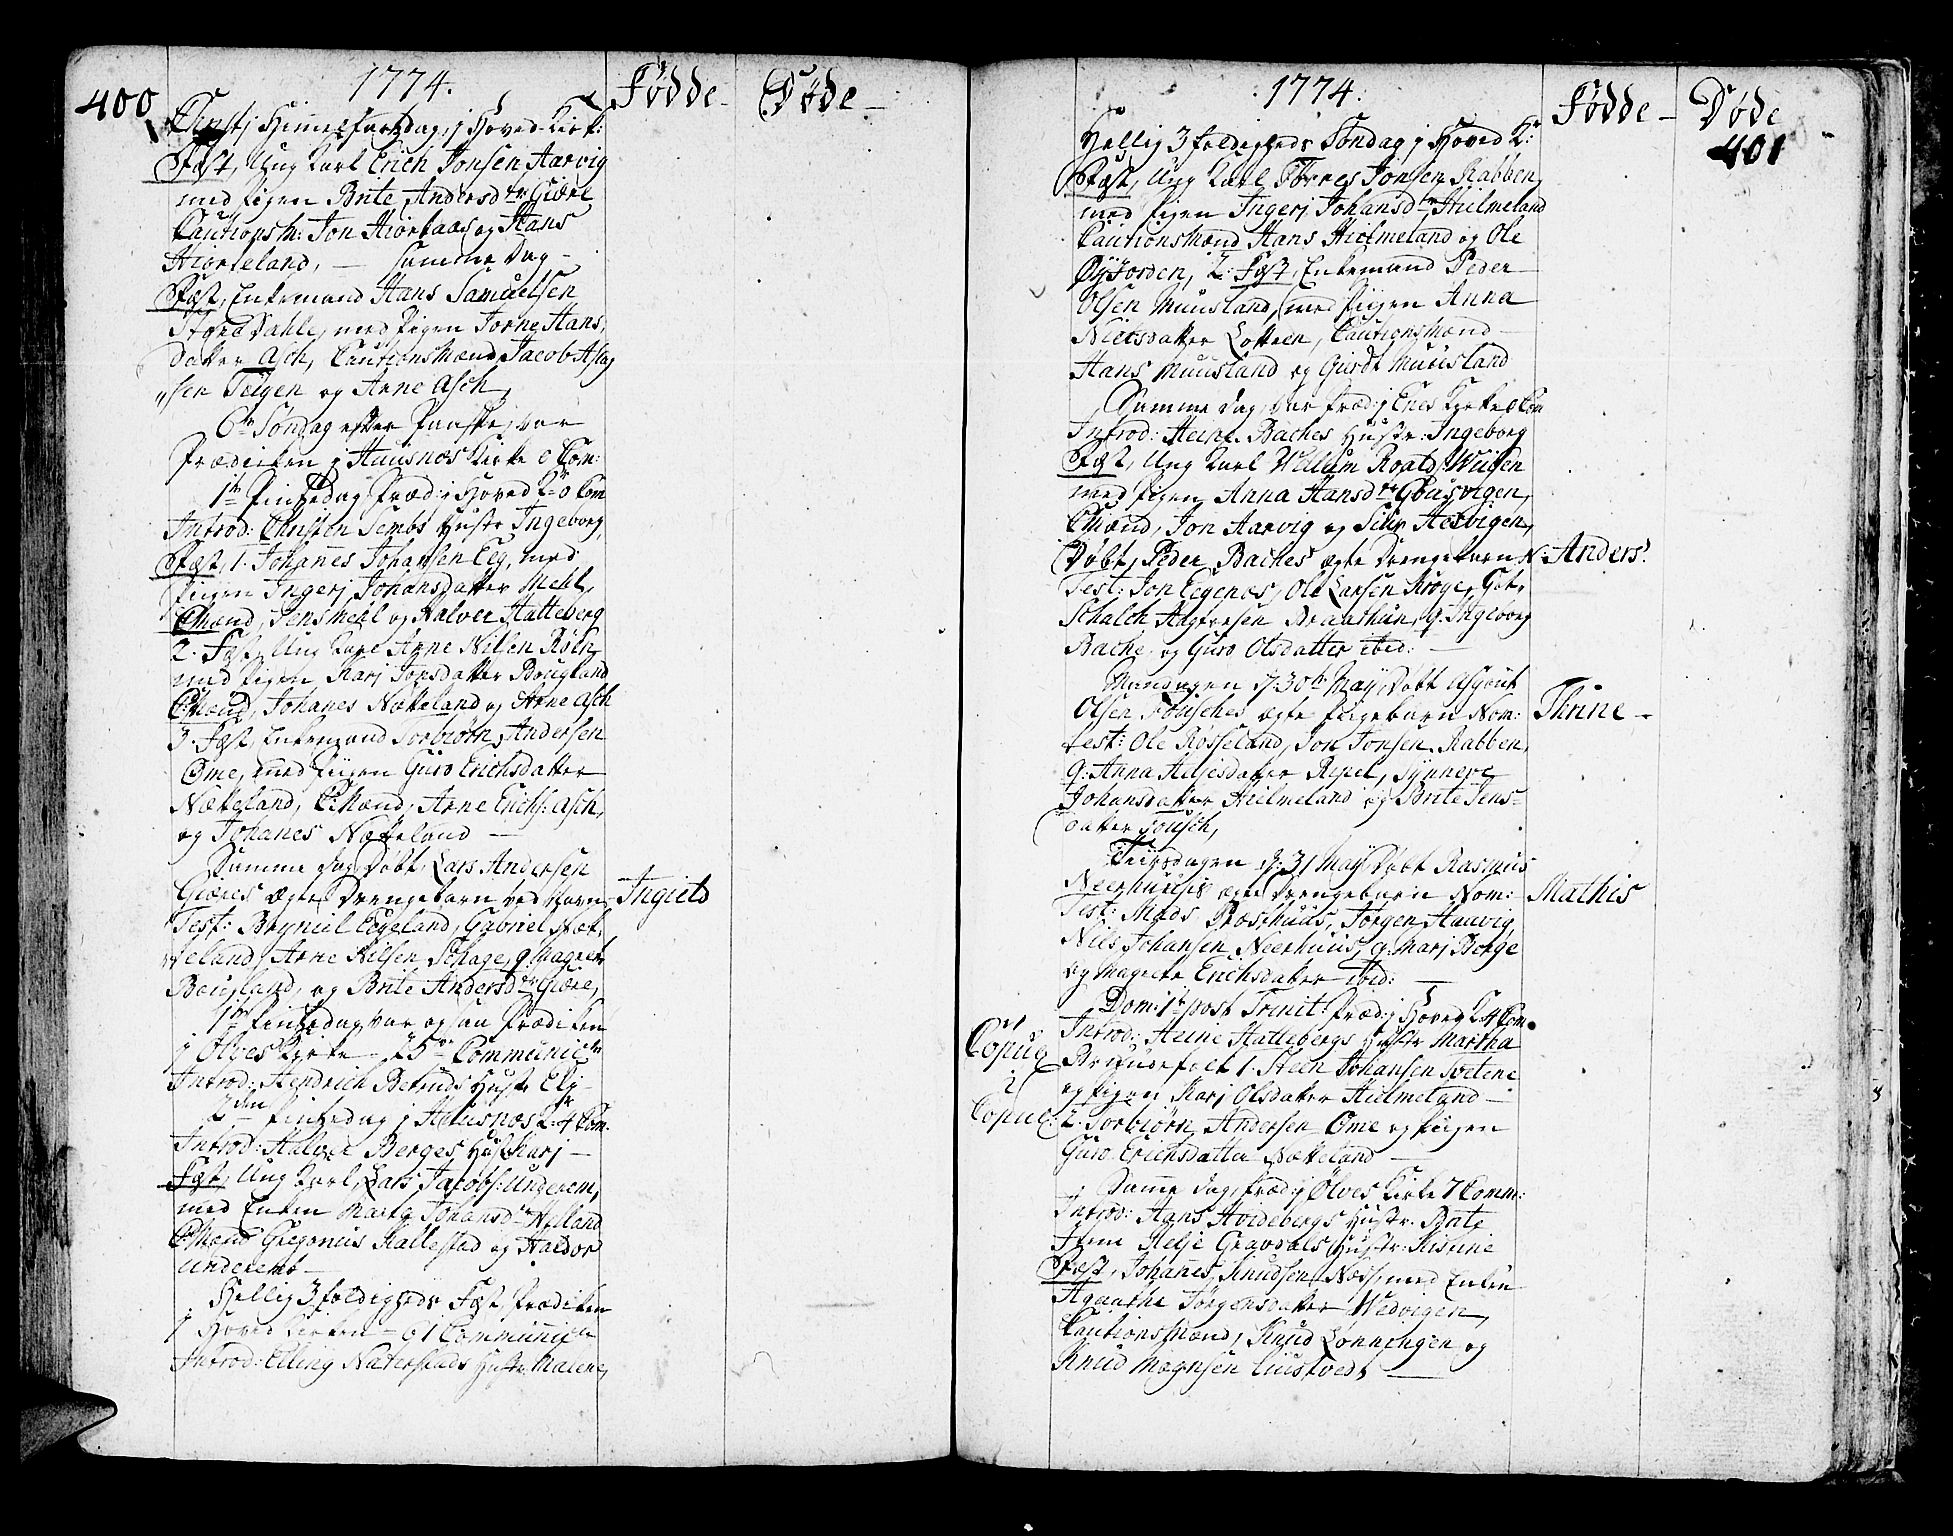 400
1774.
Fødde
Døde
Christi Himmelfartsdag, j Hoved-Kirk:
Fæst, Ung Karl Erich Jonsen Aarvig
med Pigen Brite Andersdtr Giære
Cautionsm: Jon Hiortaas og Hans
Hiorteland, — Samme Dag —
Fæst, Enkemand Hans Samuelsen
Store Dahle, med Pigen Jorne Hans,
datter Asch, Cautionsmænd Jacob Aslag
"sen Teigen og Arne Asch,
6te Søndag efter Paaske, var
Prædiken j Huusnæs Kirke 0 Com:
1te Pintzedag Præd: i Hoved K: 0 Com
Introd: Christen Sembs Hustr Ingeborg,
Fæst, 1. Johannes Johansen Eeg, med
Pigen Ingerj Johansdatter Mehl,
CMænd, Jens Mehl og Halvor Hatteberg
2. Fæst, Ung Karl Arne Nilsen
med Pigen Karj Jonsdatter Bougland
CMænd, Johanes Nætteland og Arne Asch
3. Fæst, Enkemand Torbiørn Andersen
Ome, med Pigen Guro Erichsdatter
Nætteland, CMænd, Arne Erichs: Asch,
og Johanes Nætteland —
Samme Dag Døbt, Lars Andersen
Giæres Ægte Drengebarn ved Navn
Ingield
Test: Bryniel Eegeland, Gabriel
teland, Arne Nilsen Schage, q: Magrete
Bougland, og Brite Andersdtr Giære,
1te Pintzedag var ogsaa Prædiken
j Ølves Kirke — 25 Communic
Introd: Hendrich Hustr Ely —
2den Pintzedag j Huusnæs K: 4 Com.
Introd: Halvor Berges Hust Karj —
Fæst, Ung Karl, Lars Jacobs: Underem,
med Enken Marta Johansdtr Helland
CMænd Gregorius Hallestad og Haldor
Underem —
Hellig 3foldigheds Fæst, Prædiken
j Hoved Kirken — 61 Communicn
Introd: Elling Naterstads Hustr Malene,
1774.
Fødde
Døde
401
Hellig 3foldigheds Søndag j Hoved K:
Fæst, Ung Karl Torres Jonsen Rabben,
med Pigen Ingerj Johansdtr Hielmeland
Cautionsmænd Hans Hielmeland og Ole
Øyjorden, 2: Fæst, Enkemand Peder
Olsen Muusland, med Pigen Anna
Nielsdatter Løkken, Cautionsmænd —
Hans Muusland og Giurdt Muusland
Samme dag, var Præd: j Enes Kirke 0 Com
Introd: Heine Baches Hustr: Ingeborg
Fæst, Ung Karl Wellum Roalds:
med Pigen Anna Hansdtr
CMænd, Jon Aarvig og
Døbt, Peder Baches ægte Drengebarn N:
Anders.
Test: Jon Eegenæs, Ole Larsen Kroge, Got,
Schalch Braathun, q. Ingeborg
Bache, og Guro Olsdatter ibid: —
Mandagen d: 30te May, Døbt Asgout
Olsen ægte Pigebarn Nom:
Thrine —
Test: Ole Rosseland, Jon Jonsen Rabben,
q: Anna Helgesdatter Repel, Synneve
Johansdatter Hielmeland og Brite Jens-
datter
Tiirsdagen, d: 31 May Døbt Rasmus
Neerhuuses ægte Drengebarn Nom:
Mathis
Test: Mads Præsthuus, Jørgen Hauvig,
Nils Johansen Neerhuus, q: Marj Berge
og Magrete Erichsdatter ibid: —
Dom: 1te post Trinit: Præd: j Hoved K 4 Com.
Introd: Heine Hattebergs Hustr Martha
Copul
Brudefolck 1. Steen Johansen Tvetene
og Pigen Karj Olsdatter Hielmeland —
Copul:
2. Torbiørn Andersen Ome og Pigen
Guro Erichsdatter Nætteland —
Samme dag, Præd: j Ølves Kirke 7 Comm:
Introd: Hans Hvidebergs Hustr. Brite
Item Helje Gravdals Hustr: Kistine
Fæst, Johanes Knudsen Næss, med Enken
Agathe Jørgensdatter Wedvigen,
Cautionsmænd, Knud Lønningen og
Knud Magnsen Tuustvedt —